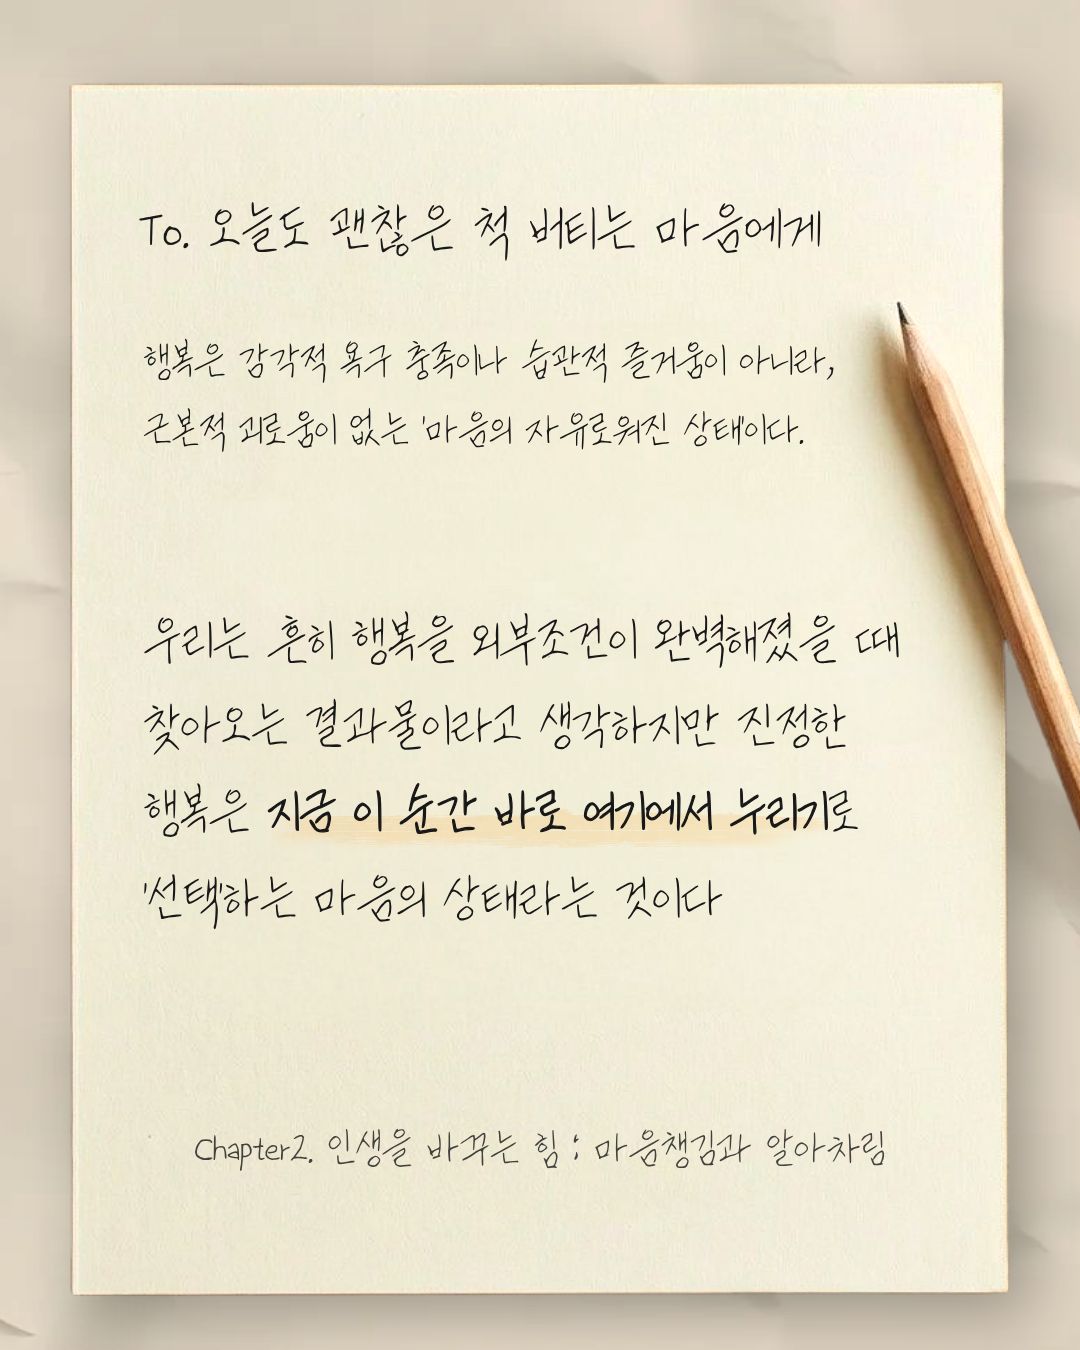 To. 오늘도 괜찮은 척 버티는 마음에게
행복은 감각적 욕구 충족이나 습관적 즐거움이 아니라,
근본적 괴로움이 없는 '마음의 자유로워진 상태'이다.
우리는 흔히 행복을 외부조건이 완벽해졌을 때
찾아오는 결과물이라고 생각하지만 진정한
행복은 지금 이 순간 바로 여기에서 누리기로
'선택'하는 마음의 상태라는 것이다
Chapter2. 인생을 바꾸는 힘 ; 마음챙김과 알아차림